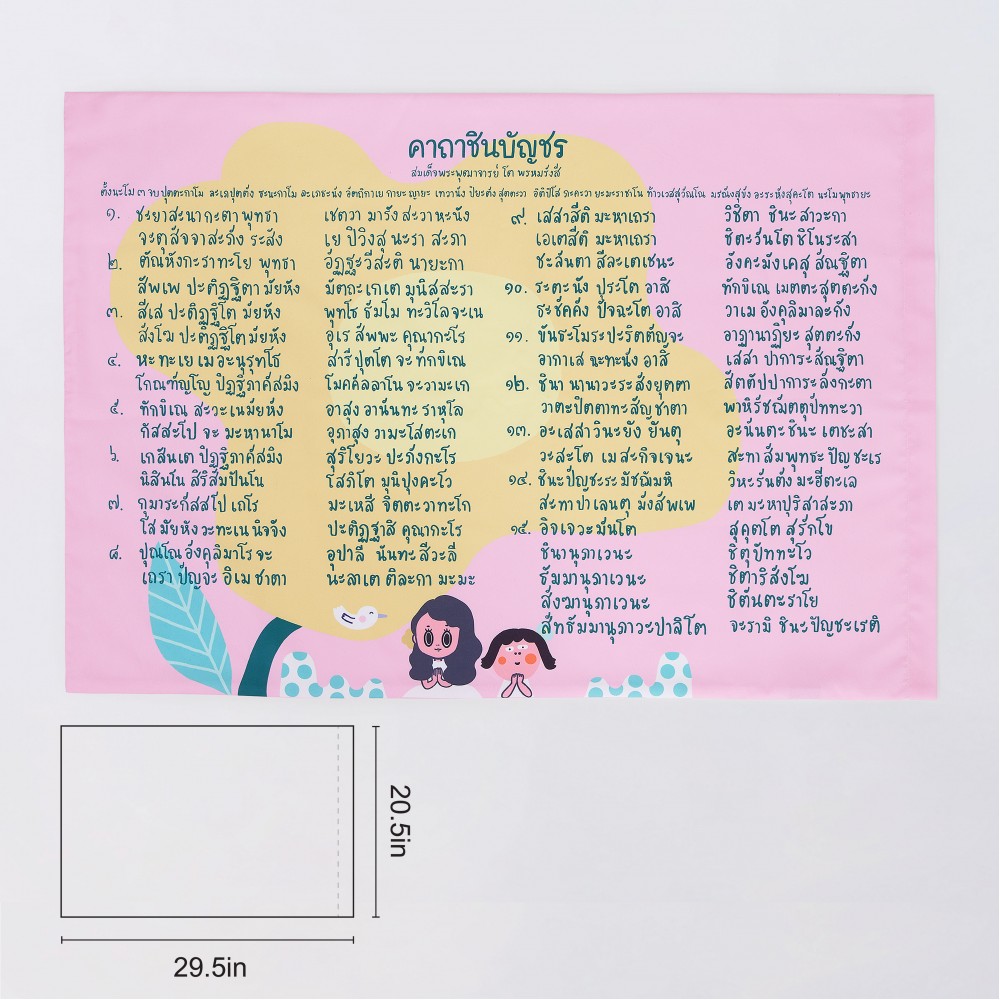 คาถาชินบัญชร
สมเด็จพระพุฒาจารย์ โต พรหมรังสี
ตั้งนะโม ๓ จบ ปุตตะกาโม ละเภปุตตัง ธะนะกาโม ละเภธะนัง อัตถิกาเย กายะญายะ เทวานัง ปิยะตัง สุตตะวา อิติปิโส ภะคะวา ยะมะราชาโน ท้าวเวสสุวัณโณ มรณังสุขัง อะระหังสุคะโต นะโมพุทธายะ
๑. ชะยาสะนากะตา พุทธา เชตวา มารัง สะวาหะนัง
จะตุสัจจาสะภัง ระสัง เย ปิวิงสุ นะรา สะภา
๒. ตัณหังกะราทะโย พุทธา อัฏฐะวีสะติ นายะกา
สัพเพ ปะติฏฐิตา มัยหัง มัตถะเกเต มุนิสสะรา
๓. สีเส ปะติฏฐิโต มัยหัง พุทโธ ธัมโม ทะวิโลจะเน
สังโฆ ปะติฏฐิโต มัยหัง อุเร สัพพะ คุณากะโร
๔. หะทะเย เม อะนุรุทโธ สารีปุตโต จะ ทักขิเณ
โกณฑัญโญ ปิฏฐิภาคัสมิง โมคคัลลาโน จะ วามะเก
๕. ทักขิเณ สะวะเน มัยหัง อาสุง อานันทะ ราหุโล
กัสสะโป จะ มะหานาโม อุภาสุง วามะโสตะเก
๖. เกสันเต ปิฏฐิภาคัสมิง สุริโยวะ ปะภังกะโร
นิสินโน สิริสัมปันโน โสภิโต มุนิปุงคะโว
๗. กุมาระกัสสโป เถโร มะเหสี จิตตะวาทะโก
โส มัยหัง วะทะเน นิจจัง ปะติฏฐาสิ คุณากะโร
๘. ปุณโณ อังคุลิมาโร จะ อุปาลี นันทะ สีวะลี
เถรา ปัญจะ อิเม ชาตา นะลาเต ติละกา มะมะ
๙. เสสาสีติ มะหาเถรา วิชิตา ชินะ สาวะกา
เอเตสีติ มะหาเถรา ชิตะวันโต ชิโนระสา
ชะลันตา สีละเตเชนะ อังคะมังเคสุ สัณฐิตา
๑๐. ระตะนัง ปุระโต อาสิ ทักขิเณ เมตตะสุตตะกัง
ธะชัคคัง ปัจฉะโต อาสิ วาเม อังคุลิมาละกัง
๑๑. ขันธะโมระปะริตตัญจะ อาฏานาฏิยะ สุตตะกัง
อากาเส ฉะทะนัง อาสิ เสสา ปาการะสัณฐิตา
๑๒. ชินา นานาวะระสังยุตตา สัตตัปปาการะลังกะตา
วาตะปิตตาทะสัญชาตา พาหิรัชฌัตตุปัททะวา
๑๓. อะเสสา วินะยัง ยันตุ อะนันตะชินะ เตชะสา
วะสะโต เม สะกิจเจนะ สะทา สัมพุทธะปัญชะเร
๑๔. ชินะปัญชะระ มัชฌัมหิ วิหะรันตัง มะฮีตะเล
สะทา ปาเลนตุ มังสัพเพ เต มะหาปุริสาสะภา
๑๕. อิจเจวะมันโต สุคุตโต สุรักโข
ชินานุภาเวนะ ชิตุปัททะโว
ธัมมานุภาเวนะ ชิตาริสังโฆ
สังฆานุภาเวนะ ชิตันตะราโย
สัทธัมมานุภาวะปาลิโต จะรามิ ชินะปัญชะเรติ
20.5in
29.5in